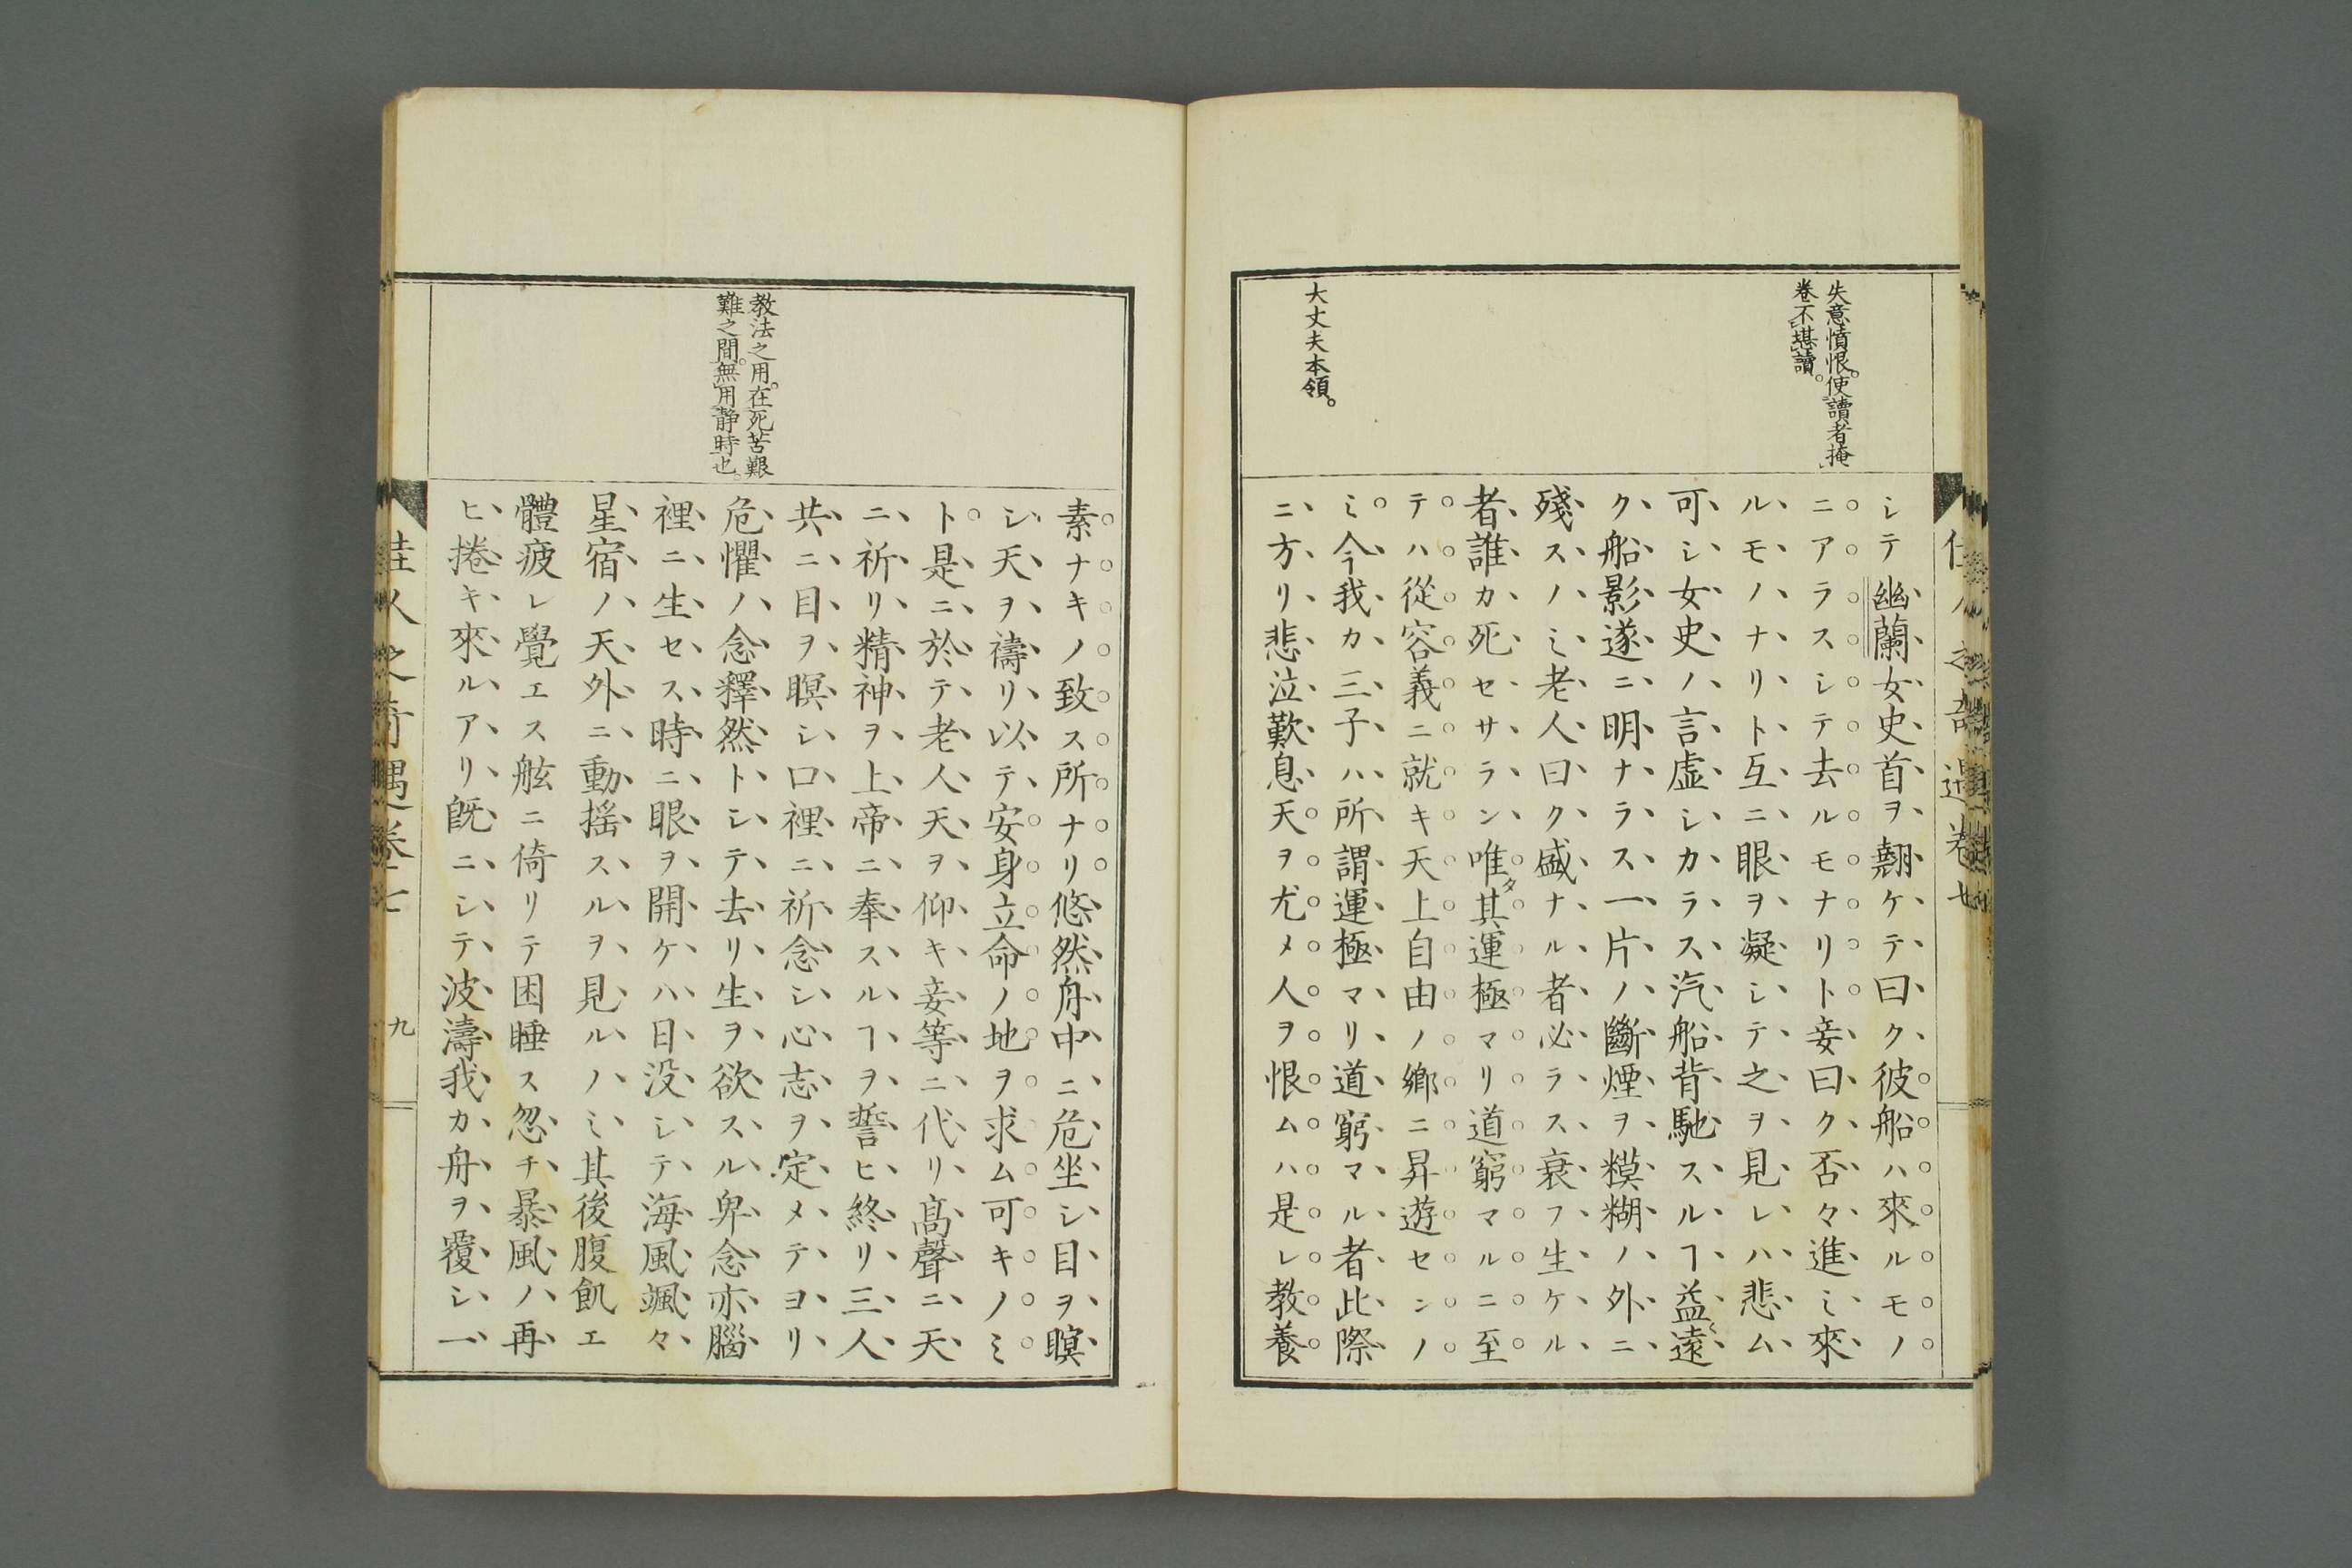 失意憤恨。使讀者掩
卷不堪讀。
大丈夫本領。
シテ幽蘭女史首ヲ翹ケテ曰ク彼船ハ來ルモノ
ニアラスシテ去ルモナリト妾曰ク否々進ミ來
ルモノナリト互ニ眼ヲ凝シテ之ヲ見レハ悲ム
可シ女史ノ言虛シカラス汽船背馳スルヿ益遠
ク船影遂ニ明ナラス一片ノ斷煙ヲ糢糊ノ外ニ
殘スノミ老人曰ク盛ナル者必ラス衰フ生ケル
者誰カ死セサラン唯タ其運極マリ道窮マルニ至
テハ從容義ニ就キ天上自由ノ鄉ニ昇遊センノ
ミ今我カ三子ハ所謂運極マリ道窮マル者此際
ニ方リ悲泣歎息天ヲ尤メ人ヲ恨ムハ是レ教養
佳人之奇遇卷七
教法之用。在死苦艱
難之間。無用靜時也。
素ナキノ致ス所ナリ悠然舟中ニ危坐シ目ヲ瞑
シ天ヲ禱リ以テ安身立命ノ地ヲ求ム可キノミ
ト是ニ於テ老人天ヲ仰キ妾等ニ代リ高聲ニ天
ニ祈リ精神ヲ上帝ニ奉スルヿヲ誓ヒ終リ三人
共ニ目ヲ瞑シ口裡ニ祈念シ心志ヲ定メテヨリ
危懼ノ念釋然トシテ去リ生ヲ欲スル卑念亦腦
裡ニ生セス時ニ眼ヲ開ケハ日没シテ海風颯々
星宿ノ天外ニ動搖スルヲ見ルノミ其後腹飢エ
體疲レ覺エス舷ニ倚リテ困睡ス忽チ暴風ノ再
ヒ捲キ來ルアリ既ニシテ波濤我カ舟ヲ覆シ一
佳人之奇遇卷七
九